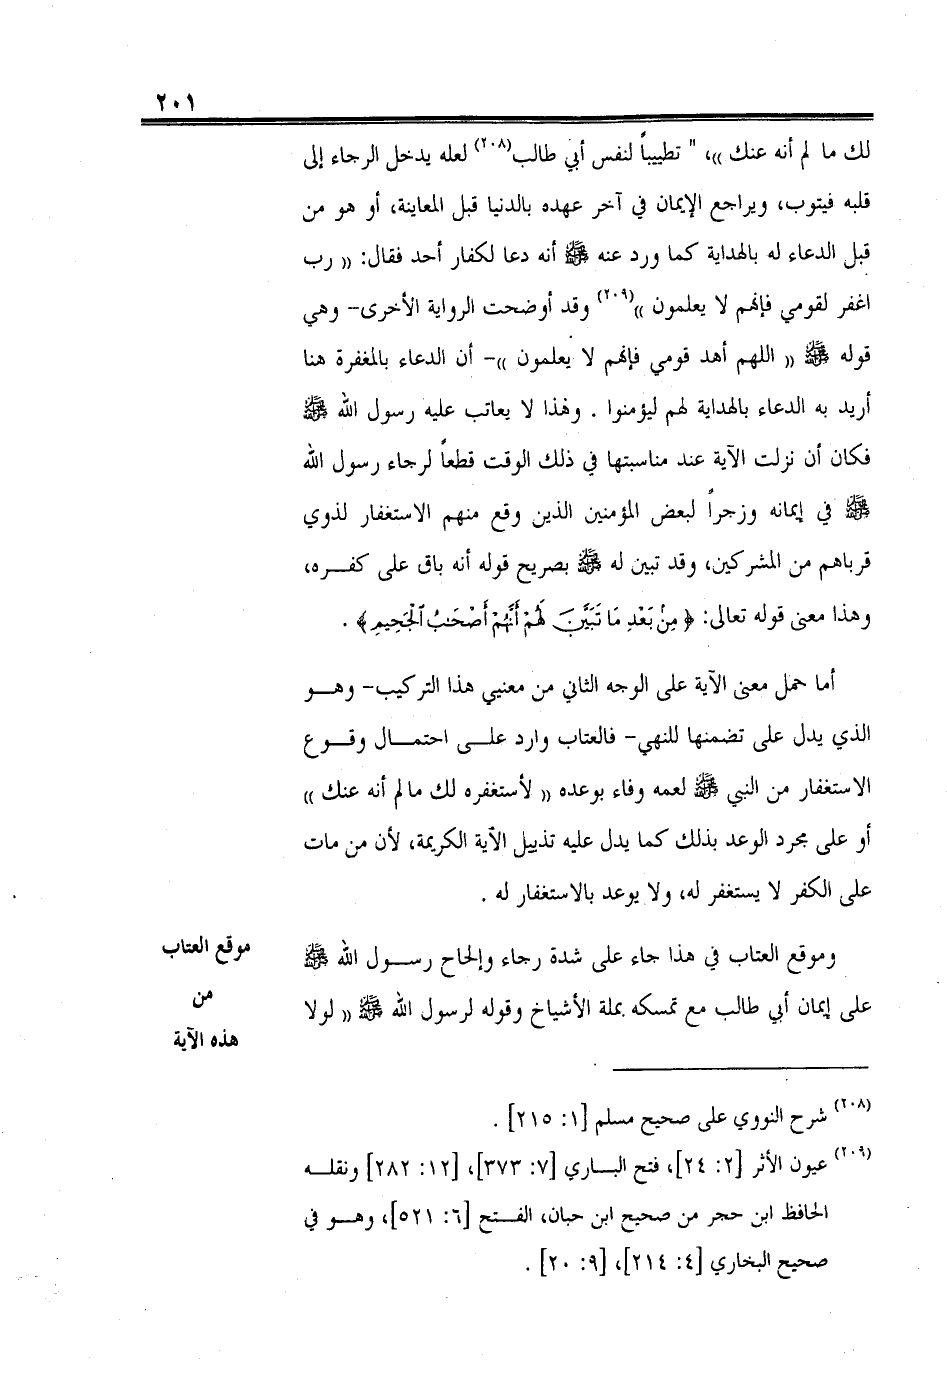 ٢٠١
لك ما لم أنه عنك »، " تطييباً لنفس أبي طالب(٢٠٨) لعله يدخل الرجاء إلى
قلبه فيتوب، ويراجع الإيمان في آخر عهده بالدنيا قبل المعاينة، أو هو من
قبل الدعاء له بالهداية كما ورد عنه ﷺ أنه دعا لكفار أحد فقال: « رب
اغفر لقومي فإنهم لا يعلمون »(٢٠٩) وقد أوضحت الرواية الأخرى- وهي
قوله ﷺ « اللهم أهد قومي فإنهم لا يعلمون »- أن الدعاء بالمغفرة هنا
أريد به الدعاء بالهداية لهم ليؤمنوا . وهذا لا يعاتب عليه رسول الله ﷺ
فكان أن نزلت الآية عند مناسبتها في ذلك الوقت قطعاً لرجاء رسول الله
ﷺ في إيمانه وزجراً لبعض المؤمنين الذين وقع منهم الاستغفار لذوي
قرباهم من المشركين، وقد تبين له ﷺ بصريح قوله أنه باق على كفـــره،
وهذا معنى قوله تعالى: ﴿ مِنۢ بَعْدِ مَا تَبَيَّنَ لَهُمْ أَنَّهُمْ أَصْحَـٰبُ ٱلْجَحِيمِ ﴾ .
أما حمل معنى الآية على الوجه الثاني من معنيي هذا التركيب- وهــو
الذي يدل على تضمنها للنهي- فالعتاب وارد علــى احتمــال وقــوع
الاستغفار من النبي ﷺ لعمه وفاء بوعده « لأستغفره لك مالم أنه عنك »
أو على مجرد الوعد بذلك كما يدل عليه تذييل الآية الكريمة، لأن من مات
على الكفر لا يستغفر له، ولا يوعد بالاستغفار له .
وموقع العتاب في هذا جاء على شدة رجاء وإلحاح رســول الله ﷺ
على إيمان أبي طالب مع تمسكه بملة الأشياخ وقوله لرسول الله ﷺ « لولا
موقع العتاب
من
هذه الآية
(٢٠٨) شرح النووي على صحيح مسلم [١: ٢١٥] .
(٢٠٩) عيون الأثر [٢: ٢٤]، فتح البــاري [٧: ٣٧٣]، [١٢: ٢٨٢] ونقلــه
الحافظ ابن حجر من صحيح ابن حبان، الفــتح [٦: ٥٢١]، وهــو في
صحيح البخاري [٤: ٢١٤]، [٩: ٢٠] .